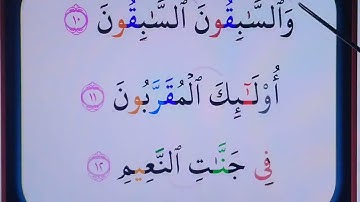 وَٱلسَّٰبِقُونَ ٱلسَّٰبِقُونَ ١٠
أُوْلَٰٓئِكَ ٱلۡمُقَرَّبُونَ ١١
فِي جَنَّٰتِ ٱلنَّعِيمِ ١٢